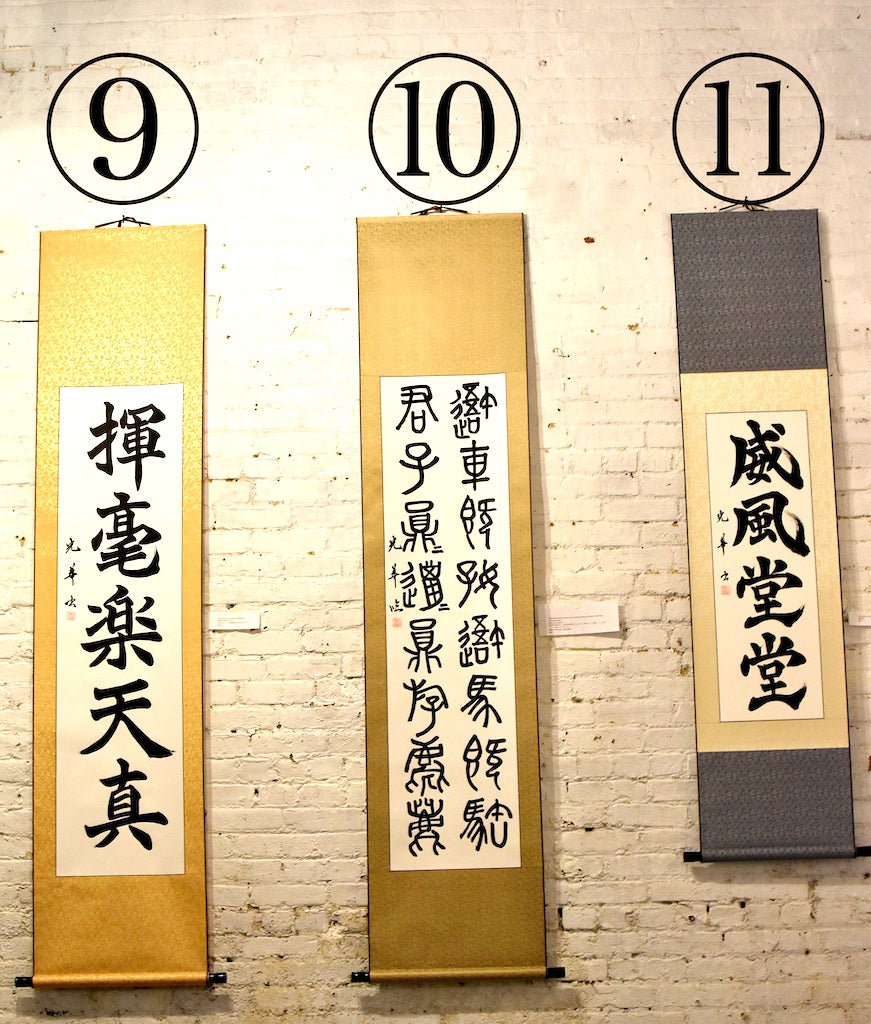 9
10
11
揮毫楽天真
光華書
車既好 馬既
君子員邋員斿
光華臨
威風堂堂
光華書